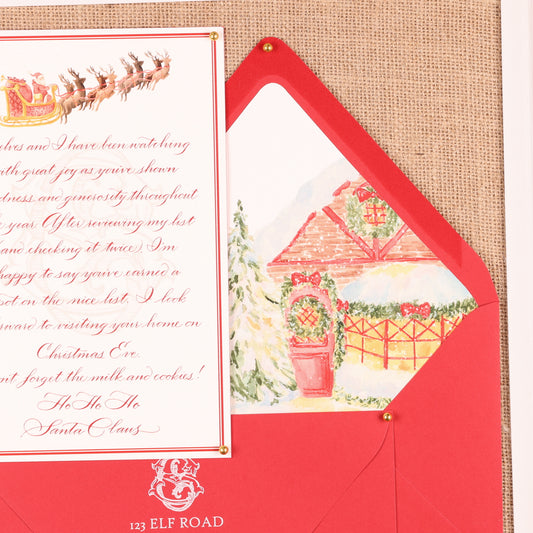 elves and I have been watching
with great joy as you've shown
kindness and generosity throughout
the year. After reviewing my list
and checking it twice, I'm
happy to say you've earned a
spot on the nice list. I look
forward to visiting your home on
Christmas Eve.
Don't forget the milk and cookies!
Ho Ho Ho
Santa Claus
123 ELF ROAD